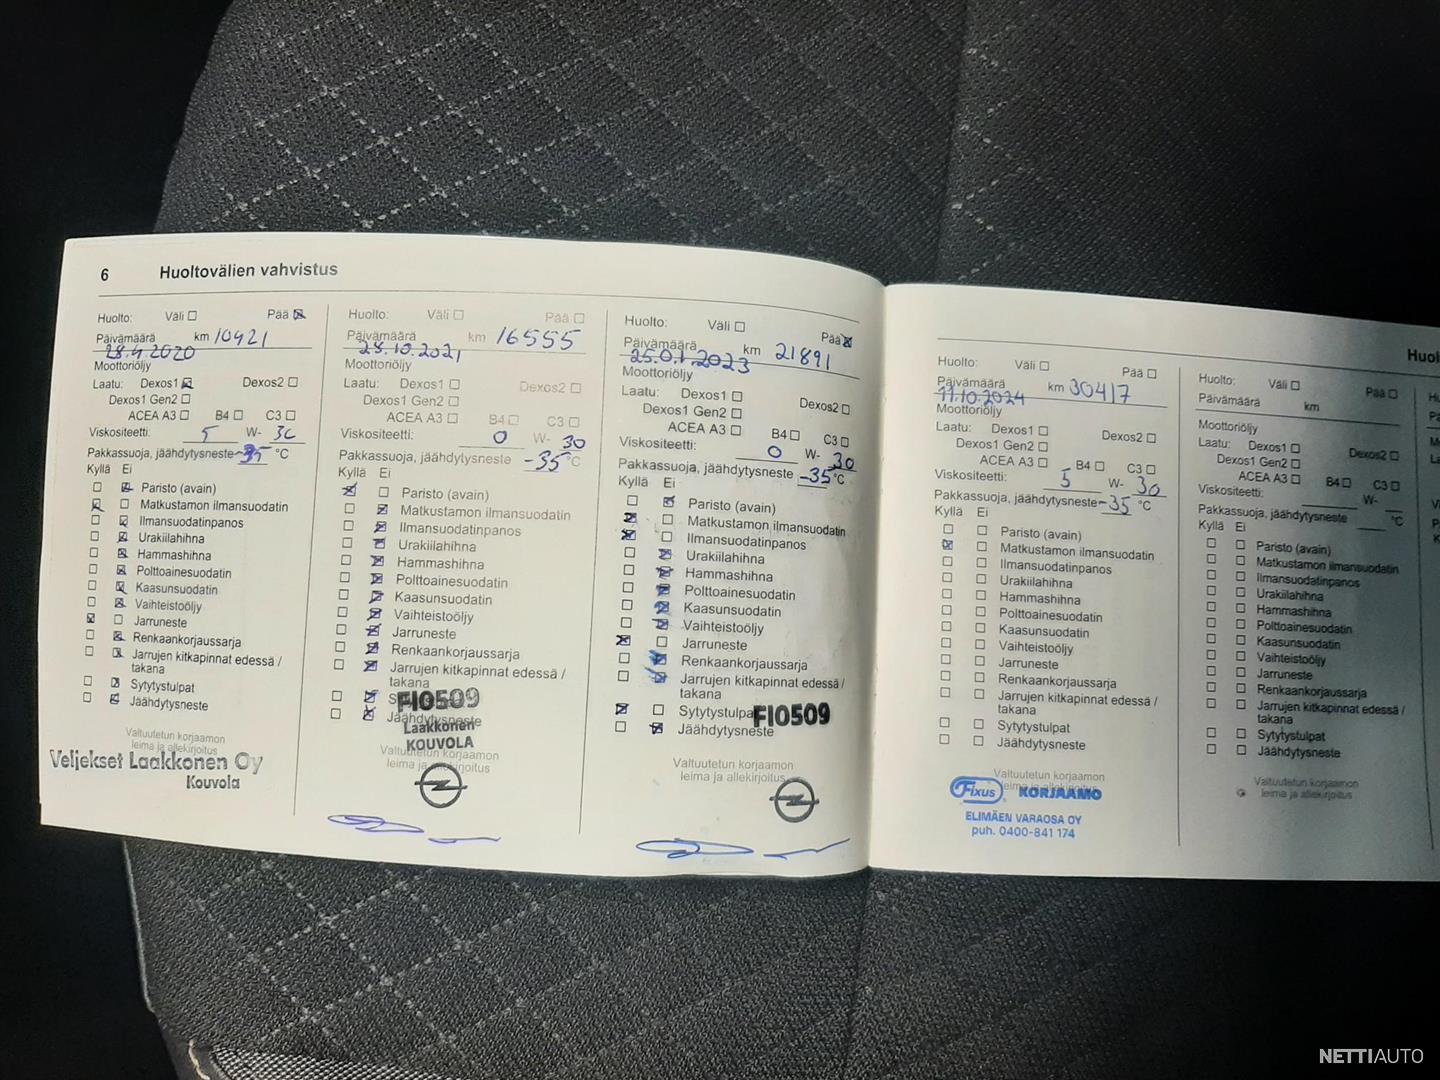 6 Huoltovälien vahvistus
Huolto: Väli Pää
Päivämäärä km 10421
28.4.2020
Moottoriöljy
Laatu: Dexos1 Dexos2
Dexos1 Gen2
ACEA A3 B4 C3
Viskositeetti: 5 W- 30
Pakkassuoja, jäähdytysneste -35 °C
Kyllä Ei
Paristo (avain)
Matkustamon ilmansuodatin
Ilmansuodatinpanos
Urakiilahihna
Hammashihna
Polttoainesuodatin
Kaasunsuodatin
Vaihteistoöljy
Jarruneste
Renkaankorjaussarja
Jarrujen kitkapinnat edessä /
takana
Sytytystulpat
Jäähdytysneste
Valtuutetun korjaamon
leima ja allekirjoitus
Veljekset Laakkonen Oy
Kouvola
Huolto: Väli Pää
Päivämäärä km 16555
28.10.2021
Moottoriöljy
Laatu: Dexos1 Dexos2
Dexos1 Gen2
ACEA A3 B4 C3
Viskositeetti: 0 W- 30
Pakkassuoja, jäähdytysneste -35 °C
Kyllä Ei
Paristo (avain)
Matkustamon ilmansuodatin
Ilmansuodatinpanos
Urakiilahihna
Hammashihna
Polttoainesuodatin
Kaasunsuodatin
Vaihteistoöljy
Jarruneste
Renkaankorjaussarja
Jarrujen kitkapinnat edessä /
takana
FI0509
Jäähdytysneste
Laakkonen
KOUVOLA
Valtuutetun korjaamon
leima ja allekirjoitus
Huolto: Väli Pää
Päivämäärä km 21891
25.01.2023
Moottoriöljy
Laatu: Dexos1 Dexos2
Dexos1 Gen2
ACEA A3 B4 C3
Viskositeetti: 0 W- 30
Pakkassuoja, jäähdytysneste -35 °C
Kyllä Ei
Paristo (avain)
Matkustamon ilmansuodatin
Ilmansuodatinpanos
Urakiilahihna
Hammashihna
Polttoainesuodatin
Kaasunsuodatin
Vaihteistoöljy
Jarruneste
Renkaankorjaussarja
Jarrujen kitkapinnat edessä /
takana
Sytytystulpat FI0509
Jäähdytysneste
Valtuutetun korjaamon
leima ja allekirjoitus
Huol
Huolto: Väli Pää
Päivämäärä km 30417
11.10.2024
Moottoriöljy
Laatu: Dexos1 Dexos2
Dexos1 Gen2
ACEA A3 B4 C3
Viskositeetti: 5 W- 30
Pakkassuoja, jäähdytysneste -35 °C
Kyllä Ei
Paristo (avain)
Matkustamon ilmansuodatin
Ilmansuodatinpanos
Urakiilahihna
Hammashihna
Polttoainesuodatin
Kaasunsuodatin
Vaihteistoöljy
Jarruneste
Renkaankorjaussarja
Jarrujen kitkapinnat edessä /
takana
Sytytystulpat
Jäähdytysneste
Valtuutetun korjaamon
leima ja allekirjoitus
Fixus KORJAAMO
ELIMÄEN VARAOSA OY
puh. 0400-841 174
Huolto: Väli Pää
Päivämäärä km
Moottoriöljy
Laatu: Dexos1 Dexos2
Dexos1 Gen2
ACEA A3 B4 C3
Viskositeetti: W-
Pakkassuoja, jäähdytysneste °C
Kyllä Ei
Paristo (avain)
Matkustamon ilmansuodatin
Ilmansuodatinpanos
Urakiilahihna
Hammashihna
Polttoainesuodatin
Kaasunsuodatin
Vaihteistoöljy
Jarruneste
Renkaankorjaussarja
Jarrujen kitkapinnat edessä /
takana
Sytytystulpat
Jäähdytysneste
Valtuutetun korjaamon
leima ja allekirjoitus
NETTIAUTO